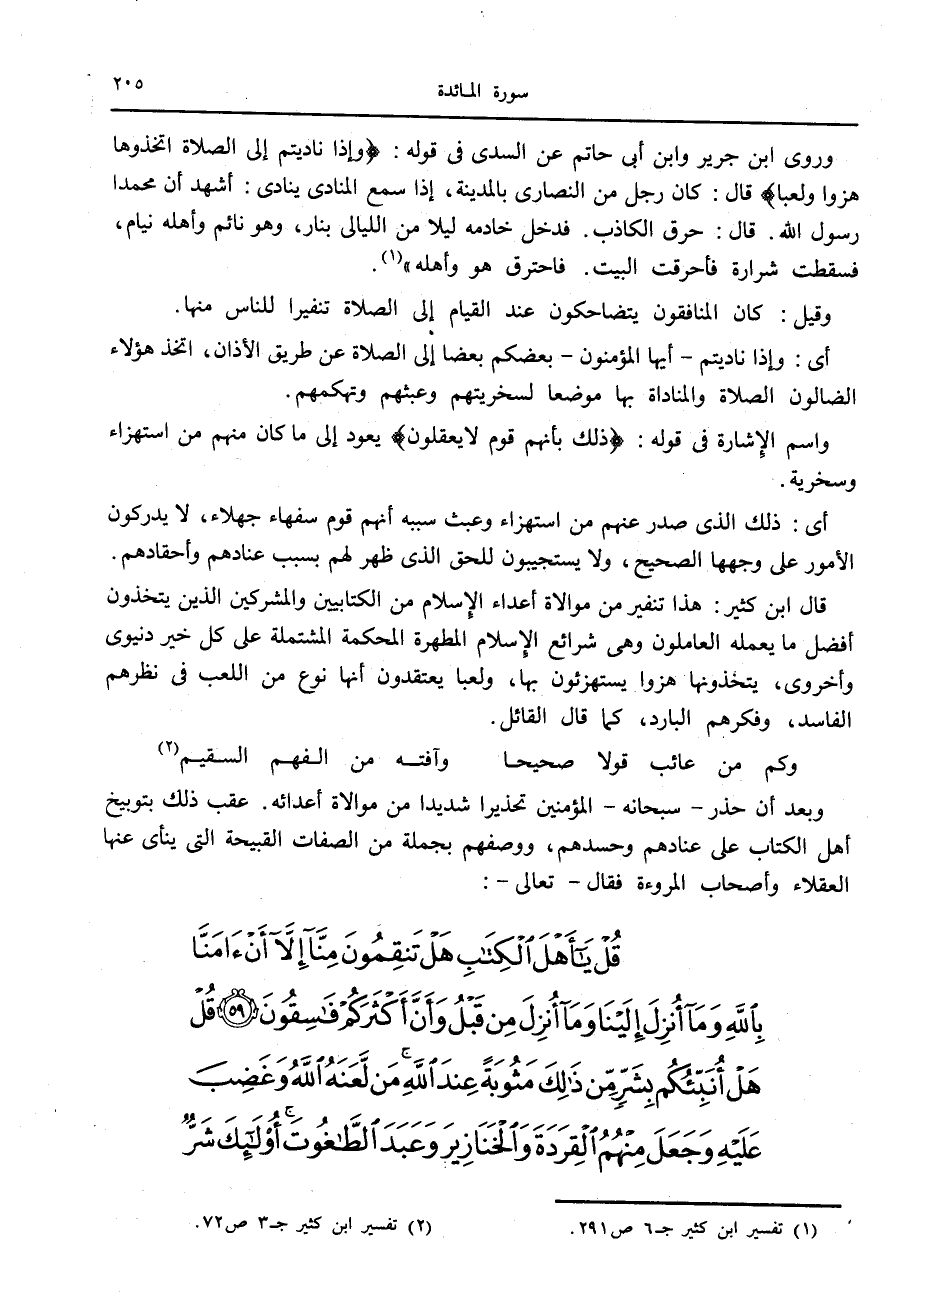 سورة المائدة ٢٠٥
وروى ابن جرير وابن أبى حاتم عن السدى فى قوله : ﴿وإذا ناديتم إلى الصلاة اتخذوها
هزوا ولعبا﴾ قال : كان رجل من النصارى بالمدينة، إذا سمع المنادى ينادى : أشهد أن محمدا
رسول الله. قال : حرق الكاذب. فدخل خادمه ليلا من الليالى بنار، وهو نائم وأهله نيام،
فسقطت شرارة فأحرقت البيت. فاحترق هو وأهله»(١).
وقيل : كان المنافقون يتضاحكون عند القيام إلى الصلاة تنفيرا للناس منها.
أى : وإذا ناديتم – أيها المؤمنون – بعضكم بعضا إلى الصلاة عن طريق الأذان، اتخذ هؤلاء
الضالون الصلاة والمناداة بها موضعا لسخريتهم وعبثهم وتهكمهم.
واسم الإشارة فى قوله : ﴿ذلك بأنهم قوم لايعقلون﴾ يعود إلى ما كان منهم من استهزاء
وسخرية.
أى : ذلك الذى صدر عنهم من استهزاء وعبث سببه أنهم قوم سفهاء جهلاء، لا يدركون
الأمور على وجهها الصحيح، ولا يستجيبون للحق الذى ظهر لهم بسبب عنادهم وأحقادهم.
قال ابن كثير : هذا تنفير من موالاة أعداء الإسلام من الكتابيين والمشركين الذين يتخذون
أفضل ما يعمله العاملون وهى شرائع الإسلام المطهرة المحكمة المشتملة على كل خير دنيوى
وأخروى، يتخذونها هزوا يستهزئون بها، ولعبا يعتقدون أنها نوع من اللعب فى نظرهم
الفاسد، وفكرهم البارد، كما قال القائل.
وكم من عائب قولا صحيحا وآفتـه من الفهم السقيم(٢)
وبعد أن حذر – سبحانه – المؤمنين تحذيرا شديدا من موالاة أعدائه. عقب ذلك بتوبيخ
أهل الكتاب على عنادهم وحسدهم، ووصفهم بجملة من الصفات القبيحة التى ينأى عنها
العقلاء وأصحاب المروءة فقال – تعالى – :
قُلْ يَٰٓأَهْلَ ٱلْكِتَٰبِ هَلْ تَنقِمُونَ مِنَّآ إِلَّآ أَنْ ءَامَنَّا
بِٱللَّهِ وَمَآ أُنزِلَ إِلَيْنَا وَمَآ أُنزِلَ مِن قَبْلُ وَأَنَّ أَكْثَرَكُمْ فَٰسِقُونَ ۝٥٩ قُلْ
هَلْ أُنَبِّئُكُم بِشَرٍّ مِّن ذَٰلِكَ مَثُوبَةً عِندَ ٱللَّهِ ۚ مَن لَّعَنَهُ ٱللَّهُ وَغَضِبَ
عَلَيْهِ وَجَعَلَ مِنْهُمُ ٱلْقِرَدَةَ وَٱلْخَنَازِيرَ وَعَبَدَ ٱلطَّٰغُوتَ ۚ أُو۟لَٰٓئِكَ شَرٌّ
(١) تفسير ابن كثير جـ٦ ص٢٩١. (٢) تفسير ابن كثير جـ٣ ص٧٢.